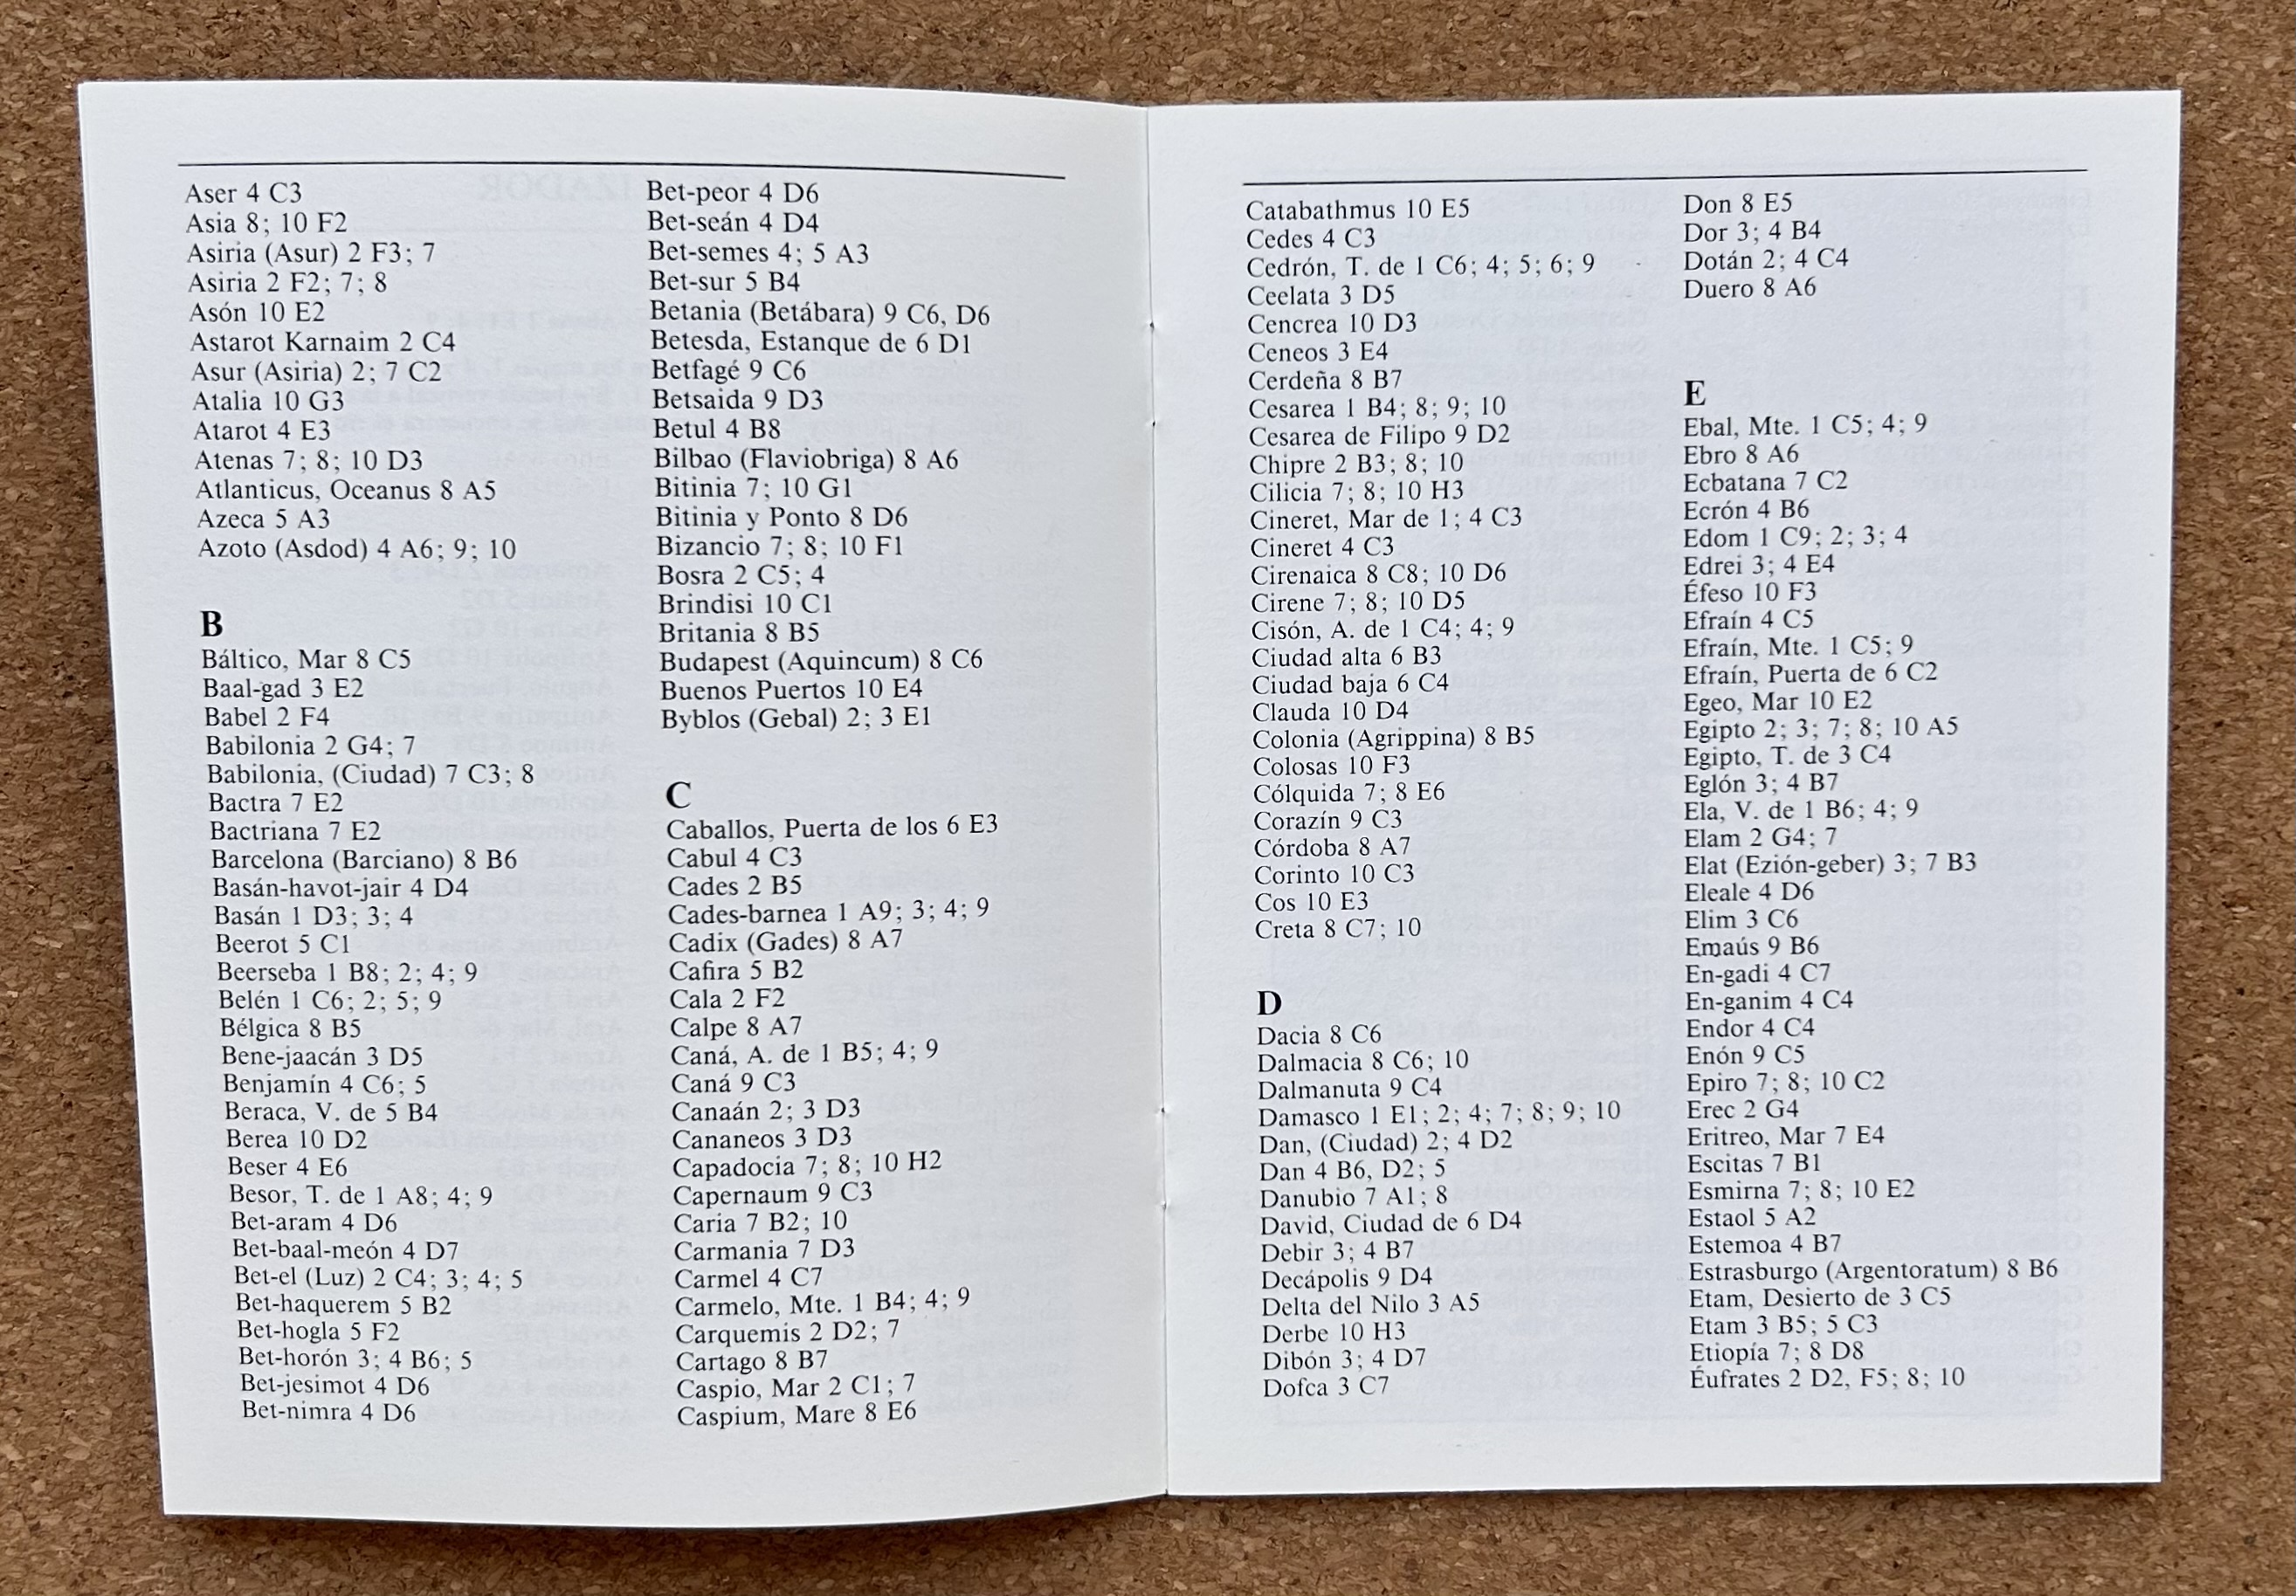 Aser 4 C3
Asia 8; 10 F2
Asiria (Asur) 2 F3; 7
Asiria 2 F2; 7; 8
Asón 10 E2
Astarot Karnaim 2 C4
Asur (Asiria) 2; 7 C2
Atalia 10 G3
Atarot 4 E3
Atenas 7; 8; 10 D3
Atlanticus, Oceanus 8 A5
Azeca 5 A3
Azoto (Asdod) 4 A6; 9; 10
B
Báltico, Mar 8 C5
Baal-gad 3 E2
Babel 2 F4
Babilonia 2 G4; 7
Babilonia, (Ciudad) 7 C3; 8
Bactra 7 E2
Bactriana 7 E2
Barcelona (Barciano) 8 B6
Basán-havot-jair 4 D4
Basán 1 D3; 3; 4
Beerot 5 C1
Beerseba 1 B8; 2; 4; 9
Belén 1 C6; 2; 5; 9
Bélgica 8 B5
Bene-jaacán 3 D5
Benjamín 4 C6; 5
Beraca, V. de 5 B4
Berea 10 D2
Beser 4 E6
Besor, T. de 1 A8; 4; 9
Bet-aram 4 D6
Bet-baal-meón 4 D7
Bet-el (Luz) 2 C4; 3; 4; 5
Bet-haquerem 5 B2
Bet-hogla 5 F2
Bet-horón 3; 4 B6; 5
Bet-jesimot 4 D6
Bet-nimra 4 D6
Bet-peor 4 D6
Bet-seán 4 D4
Bet-semes 4; 5 A3
Bet-sur 5 B4
Betania (Betábara) 9 C6, D6
Betesda, Estanque de 6 D1
Betfagé 9 C6
Betsaida 9 D3
Betul 4 B8
Bilbao (Flaviobriga) 8 A6
Bitinia 7; 10 G1
Bitinia y Ponto 8 D6
Bizancio 7; 8; 10 F1
Bosra 2 C5; 4
Brindisi 10 C1
Britania 8 B5
Budapest (Aquincum) 8 C6
Buenos Puertos 10 E4
Byblos (Gebal) 2; 3 E1
C
Caballos, Puerta de los 6 E3
Cabul 4 C3
Cades 2 B5
Cades-barnea 1 A9; 3; 4; 9
Cadix (Gades) 8 A7
Cafira 5 B2
Cala 2 F2
Calpe 8 A7
Caná, A. de 1 B5; 4; 9
Caná 9 C3
Canaán 2; 3 D3
Cananeos 3 D3
Capadocia 7; 8; 10 H2
Capernaum 9 C3
Caria 7 B2; 10
Carmania 7 D3
Carmel 4 C7
Carmelo, Mte. 1 B4; 4; 9
Carquemis 2 D2; 7
Cartago 8 B7
Caspio, Mar 2 C1; 7
Caspium, Mare 8 E6
Catabathmus 10 E5
Cedes 4 C3
Cedrón, T. de 1 C6; 4; 5; 6; 9
Ceelata 3 D5
Cencrea 10 D3
Ceneos 3 E4
Cerdeña 8 B7
Cesarea 1 B4; 8; 9; 10
Cesarea de Filipo 9 D2
Chipre 2 B3; 8; 10
Cilicia 7; 8; 10 H3
Cineret, Mar de 1; 4 C3
Cineret 4 C3
Cirenaica 8 C8; 10 D6
Cirene 7; 8; 10 D5
Cisón, A. de 1 C4; 4; 9
Ciudad alta 6 B3
Ciudad baja 6 C4
Clauda 10 D4
Colonia (Agrippina) 8 B5
Colosas 10 F3
Cólquida 7; 8 E6
Corazín 9 C3
Córdoba 8 A7
Corinto 10 C3
Cos 10 E3
Creta 8 C7; 10
D
Dacia 8 C6
Dalmacia 8 C6; 10
Dalmanuta 9 C4
Damasco 1 E1; 2; 4; 7; 8; 9; 10
Dan, (Ciudad) 2; 4 D2
Dan 4 B6, D2; 5
Danubio 7 A1; 8
David, Ciudad de 6 D4
Debir 3; 4 B7
Decápolis 9 D4
Delta del Nilo 3 A5
Derbe 10 H3
Dibón 3; 4 D7
Dofca 3 C7
Don 8 E5
Dor 3; 4 B4
Dotán 2; 4 C4
Duero 8 A6
E
Ebal, Mte. 1 C5; 4; 9
Ebro 8 A6
Ecbatana 7 C2
Ecrón 4 B6
Edom 1 C9; 2; 3; 4
Edrei 3; 4 E4
Éfeso 10 F3
Efraín 4 C5
Efraín, Mte. 1 C5; 9
Efraín, Puerta de 6 C2
Egeo, Mar 10 E2
Egipto 2; 3; 7; 8; 10 A5
Egipto, T. de 3 C4
Eglón 3; 4 B7
Ela, V. de 1 B6; 4; 9
Elam 2 G4; 7
Elat (Ezión-geber) 3; 7 B3
Eleale 4 D6
Elim 3 C6
Emaús 9 B6
En-gadi 4 C7
En-ganim 4 C4
Endor 4 C4
Enón 9 C5
Epiro 7; 8; 10 C2
Erec 2 G4
Eritreo, Mar 7 E4
Escitas 7 B1
Esmirna 7; 8; 10 E2
Estaol 5 A2
Estemoa 4 B7
Estrasburgo (Argentoratum) 8 B6
Etam, Desierto de 3 C5
Etam 3 B5; 5 C3
Etiopía 7; 8 D8
Éufrates 2 D2, F5; 8; 10